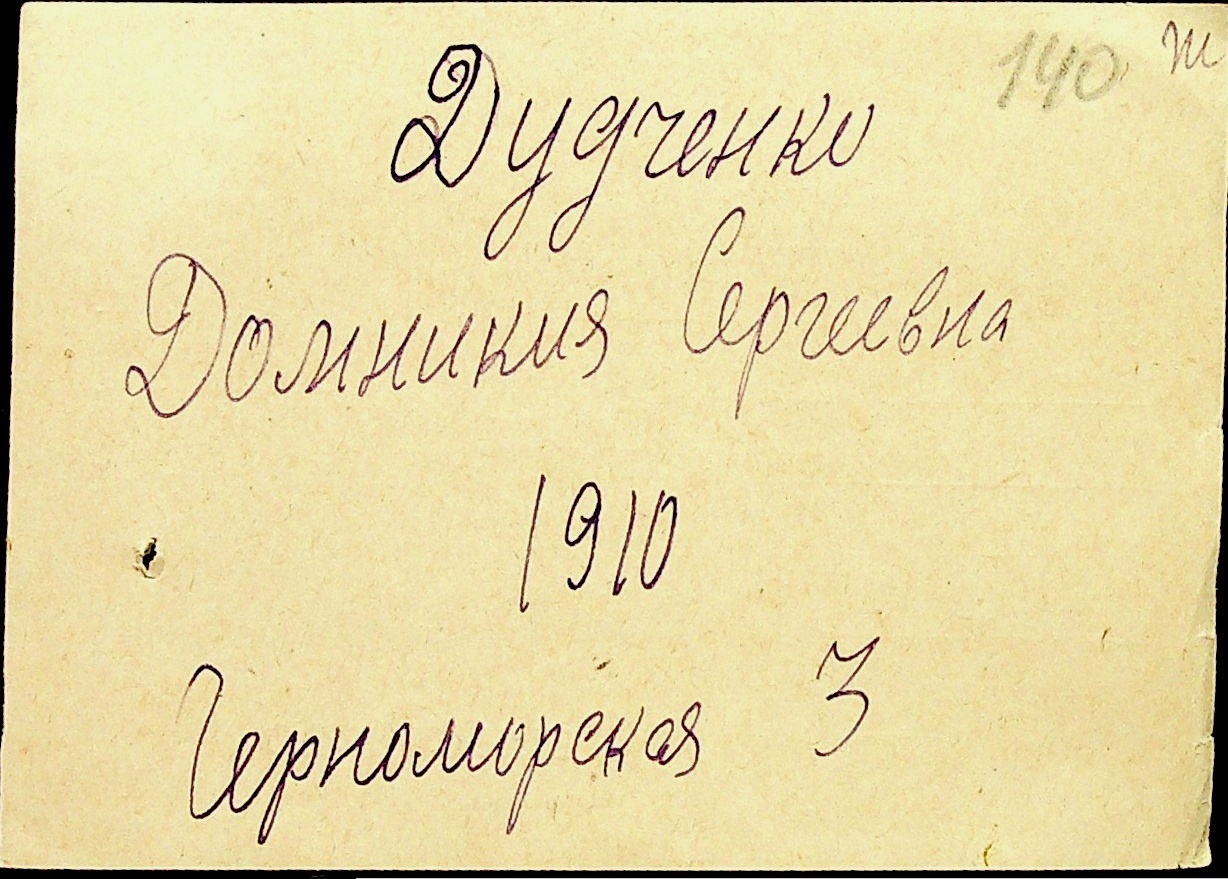 140 т
Дудченко
Домникия Сергеевна
1910
Черноморская 3